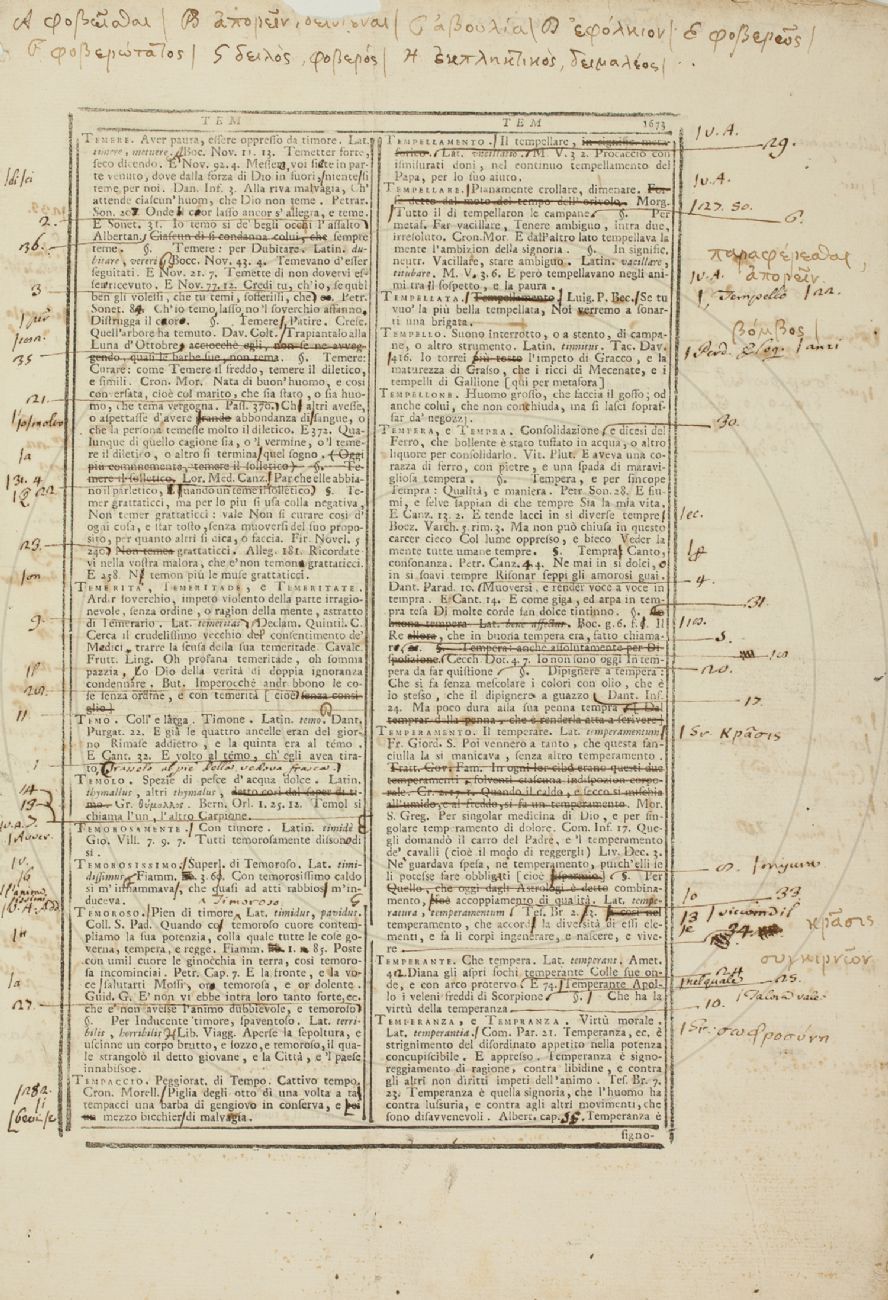 Α φοβεῖσθαι | Β ἀπορεῖν, | C ἀβουλία | D ἐφόλκιον | Ε φοβερῶς |
F φοβερώτατος | G δειλὸς, φοβερός | Η ἐκπληκτικὸς, δειμαλέος |
TEM
TEMERE. Aver paura, essere oppresso da timore. Lat.
timere, metuere. Boc. Nov. 11. 12. Temetter forte,
seco dicendo. E Nov. 92. 4. Messer, voi siete in par-
te venuto, dove dalla forza di Dio in fuori, niente si
teme per noi. Dan. Inf. 3. Alla riva malvagia, Ch'
attende ciascun' huom, che Dio non teme. Petrar.
Son. 207. Onde l cuor lasso ancor s'allegra, e teme.
E Sonet. 31. Io temo si de' begli occhi l'assalto
Albertan. Giascun di si condanna colui, che sempre
teme. §. Temere: per Dubitare. Latin. du-
bitare, vereri. Bocc. Nov. 43. 4. Temevano d'esser
seguitati. E Nov. 21. 7. Temette di non dovervi es-
ser ricevuto. E Nov. 77. 12. Credi tu, ch'io, se qubl
ben gli volessi, che tu temi, sofferissi, che Petr.
Sonet. 84. Ch'io temo, lasso, no'l soverchio affanno,
Distrugga il cuore. §. Temere, Patire. Cresc.
Quell'arbore ha temuto. Dav. Colt. Trapiantalo alla
Luna d'Ottobre, accioechè egli, non se ne avveg-
gendo, quasi le barbe sue, non tema. §. Temere:
Curare: come Temere il freddo, temere il diletico,
e simili. Cron. Mor. Nata di buon'huomo, e cosi
con essata, cioè col marito, che sia stato, o sia huo-
mo, che tema vergogna. Pass. 376. Chi altri avesse,
o aspettasse d'avere grande abbondanza di sangue, o
che la persona temesse molto il diletico. E 372. Qua-
lunque di quello cagione sia, o 'l vermine, o 'l teme-
re il diletico, o altro si termina quel sogno. (Oggi
più comunemente, temere il solletico) §. Te-
mere il solletico. Lor. Med. Canz. Par che elle abbia-
no il parletico, Quando un teme il solletico) §. Te-
mer grattaticci, ma per lo piu si usa colla negativa,
Non temer grattaticci: vale Non si curare cosi d'
ogni cosa, e star tosto, senza muoversi del suo propo-
sito, per quanto altri si dica, o faccia. Fir. Novel. 5
240. Non temea grattaticci. Alleg. 181. Ricordate-
vi nella vostra malora, che e' non temono grattaticci.
E 258. Nè temon più le muse grattaticci.
TEMERITÀ, TEMERITADE, e TEMERITATE.
Ardir soverchio, impeto violento della parte irragio-
nevole, senza ordine, o ragion della mente, astratto
di Temerario. Lat. temeritas. Declam. Quintil. C.
Cerca il crudelissimo vecchio del consentimento de'
Medici, trarre la sensa della sua temeritade. Cavalc.
Frutt. Ling. Oh profana temeritade, oh somma
pazzia, Lo Dio della verità di doppia ignoranza
condennare. But. Imperocchè andrebbono le co-
se senza ordine, e con temerità [cioè senza consi-
glio]
TEMO. Coll' e larga. Timone. Latin. temo. Dant.
Purgat. 22. E già le quattro ancelle eran del gior-
no Rimase addietro, e la quinta era al témo.
E Cant. 32. E volto al témo, ch' egli avea tira-
to,
TEMOLO. Spezie di pesce d'acqua dolce. Latin.
thymallus, altri thymalus, detto così dal saper di ti-
mo. Gr. θύμαλλος. Bern. Orl. 1. 25. 12. Temol si
chiama l'un, l'altro Carpione.
TEMOROSAMENTE. Con timore. Latin. timidè
Gio. Vill. 7. 9. 7. Tutti temorosamente dissono di
si.
TEMOROSISSIMO. Superl. di Temoroso. Lat. timi-
dissimus. Fiamm. 3. 69. Con temorosissimo caldo
si m' infiammava, che quasi ad atti rabbiosi m'in-
duceva. Timoroso G
TEMOROSO. Pien di timore. Lat. timidus, pavidus.
Coll. S. Pad. Quando col temoroso cuore contem-
pliamo la sua potenzia, colla quale tutte le cose go-
verna, tempera, e regge. Fiamm. 1. 85. Poste
con umil cuore le ginocchia in terra, cosi temoro-
sa incominciai. Petr. Cap. 7. E la fronte, e la vo-
ce salutarti Mossi, or temorosa, e or dolente.
Guid. G. E' non vi ebbe intra loro tanto forte, ec.
che e' non avesse l'animo dubbievole, e temoroso
§. Per Inducente timore, spaventoso. Lat. terri-
bilis, horribilis. Lib. Viagg. Aperse la sepoltura, e
uscinne un corpo brutto, e sozzo, e temoroso, il qua-
le strangolò il detto giovane, e la Città, e 'l paese
innabissoe.
TEMPACCIO. Peggiorat. di Tempo. Cattivo tempo.
Cron. Morell. Piglia degli otto di una volta a tai
tempacci una barba di gengiovo in conserva, e
mezzo bicchier di malvagia.
TEM 1673
TEMPELLAMENTO. Il tempellare, in signific. meta-
forico. Lat. vacillatio. M. V. 3 2. Procaccio con
ismisurati doni, nel continuo tempellamento del
Papa, per lo suo aiuto.
TEMPELLARE. Pianamente crollare, dimenare. For-
se detto dal moto del tempo dell'orivolo. Morg.
Tutto il di tempellaron le campane. §. Per
metaf. Far vacillare, Tenere ambiguo, intra due,
irresoluto. Cron. Mor. E dall'altro lato tempellava la
mente l'ambizion della signoria. §. In signific.
neutr. Vacillare, stare ambiguo. Latin. vacillare,
titubare. M. V. 3. 6. E però tempellavano negli ani-
mi tra il sospetto, e la paura.
TEMPELLATA. Tempellamento. Luig. P. Bec. Se tu
vuo' la più bella tempellata, Noi verremo a sonar-
ti una brigata.
TEMPELLO. Suono interrotto, o a stento, di campa-
ne, o altro strumento. Latin. tinnitus. Tac. Dav.
416. Io torrei più tosto l'impeto di Gracco, e la
maturezza di Grasso, che i ricci di Mecenate, e i
tempelli di Gallione [qui per metafora]
TEMPELLONE. Huomo grosso, che faccia il goffo; od
anche colui, che non conchiuda, ma si lasci sopraf-
far da' negozzi.
TEMPERA, e TEMPRA. Consolidazione, e dicesi del
Ferro, che bollente è stato tuffato in acqua, o altro
liquore per consolidarlo. Vit. Plut. E aveva una co-
razza di ferro, con pietre, e una spada di maravi-
gliosa tempera. §. Tempera, e per sincope
Tempra: Qualità, e maniera. Petr Son. 28. E fiu-
mi, e selve sappian di che tempre Sia la mia vita,
E Canz. 13. 2. E tende lacci in si diverse tempre,
Boez. Varch. 5. rim. 3. Ma non può chiusa in questo
carcer cieco Col lume oppresso, e bieco Veder la
mente tutte umane tempre. §. Tempra, Canto,
consonanza. Petr. Canz. 44. Ne mai in si dolci, o
in si soavi tempre Risonar seppi gli amorosi guai.
Dant. Parad. 10. Muoversi, e render voce a voce in
tempra. E Cant. 14. E come giga, ed arpa in tem-
pra tesa Di molte corde fan dolce tintinno. §.
buona tempera Lat. bene affectus. Boc. g. 6. f. Il
Re allora, che in buona tempera era, fatto chiama-
re §. Tempera: anche assolutamente per Di-
sposizione. Cecch. Dot. 4. 7. Io non sono oggi In tem-
pera da far quistione §. Dipignere a tempera:
Che si fa senza mescolare i colori con olio, che è
lo stesso, che il dipignere a guazzo. Dant. Inf.
24. Ma poco dura alla sua penna tempra. [Dal
temprar della penna, che è renderla atta a scrivere]
TEMPERAMENTO. Il temperare. Lat. temperamentum.
Fr. Giord. S. Poi vennero a tanto, che questa fan-
ciulla la si manicava, senza altro temperamento.
Tratt. Gov. Fam. In ogni lor cibo erano questi due
temperamenti, solventi ciascuna indisposizion corpo-
rale. Cr. 2. 17. 1. Quando il caldo, e secco si mischia
all'umido, e al freddo, si fa un temperamento. Mor.
S. Greg. Per singolar medicina di Dio, e per sin-
golare temperamento di dolore. Com. Inf. 17. Que-
gli domandò il carro del Padre, e 'l temperamento
de' cavalli (cioè il modo di reggergli) Liv. Dec. 3.
Ne' guardava spesa, ne temperamento, purch'elli le
li potesse fare obbligati [cioè risparmio] §. Per
Quello, che oggi dagli Astrologi è detto combina-
mento, cioè accoppiamento di qualità. Lat. tempe-
ratura, temperamentum. Tes. Br 2. 3. E così nel
temperamento, che accorda la diversità di essi ele-
menti, e fa li corpi ingenerare, e nascere, e vive-
re
TEMPERANTE. Che tempera. Lat. temperans. Amet.
42. Diana gli aspri fochi temperante Colle sue on-
de, e con arco protervo. E 74. Temperante Apol-
lo i veleni freddi di Scorpione. §. Che ha la
virtù della temperanza
TEMPERANZA, e TEMPRANZA. Virtù morale.
Lat. temperantia. Com. Par. 21. Temperanza, ec. è
strignimento del disordinato appetito nella potenza
concupiscibile. E appresso. Temperanza è signo-
reggiamento di ragione, contra libidine, e contra
gli altri non diritti impeti dell'animo. Tes. Br. 7.
23. Temperanza è quella signoria, che l'huomo ha
contra lussuria, e contra agli altri movimenti, che
sono disavvenevoli. Albert. cap. Temperanza è
signo-
2.
36.
3
35
21.
1a
131. 4
23.
9
20.
11
14
13
27.
1282
1 v. A.
29.
1 v. A.
127. 50.
6.
παραφέρεσθαι,
ἀπορεῖν
1 v. A.
1 Tempello 122.
βόμβος
30.
1 ec.
4.
31
5.
20.
17.
1 Gr κρᾶσις
33
κρᾶσις
συγκιρνῶν
25.
10.
1 Gr. σωφροσύνη